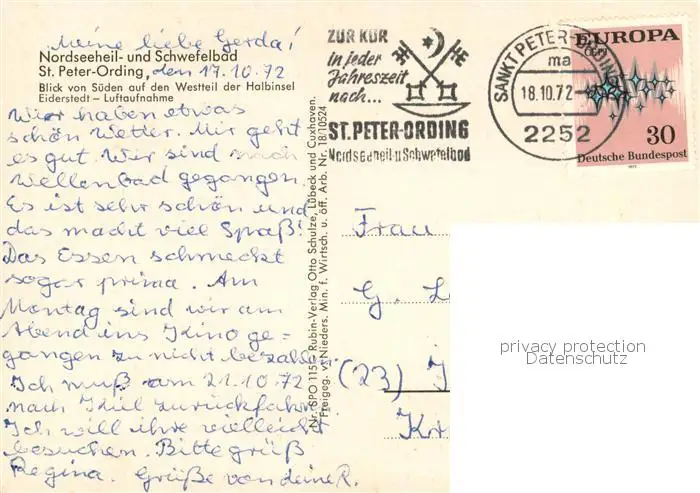 Meine liebe Gerda!
Nordseeheil- und Schwefelbad
St. Peter-Ording, den 17.10.72
Blick von Süden auf den Westteil der Halbinsel
Eiderstedt – Luftaufnahme
Wir haben etwas
schön Wetter. Mir geht
es gut. Wir sind nach
Wellenbad gegangen.
Es ist sehr schön und
das macht viel Spaß!
Das Essen schmeckt
sogar prima. Am
Montag sind wir am
Abend ins Kino ge=
gangen zu nicht bezahlen.
Ich muß am 21.10.72
nach Kiel zurückfahr
Ich will ihre vielleicht
besuchen. Bitte grüß
Regina. Grüße von deine R.
Nr. SPO 115 Rubin-Verlag Otto Schulze, Lübeck und Cuxhaven.
Freigeg. v. Nieders. Min. f. Wirtsch. u. öff. Arb. Nr. 18/10524
ZUR KUR
in jeder
Jahreszeit
nach...
ST. PETER-ORDING
Nordseeheil-u Schwefelbad
SANKT PETER-ORDING
ma
18.10.72
2252
EUROPA
30
Deutsche Bundespost
1972
Frau
G.
(23)
privacy protection
Datenschutz